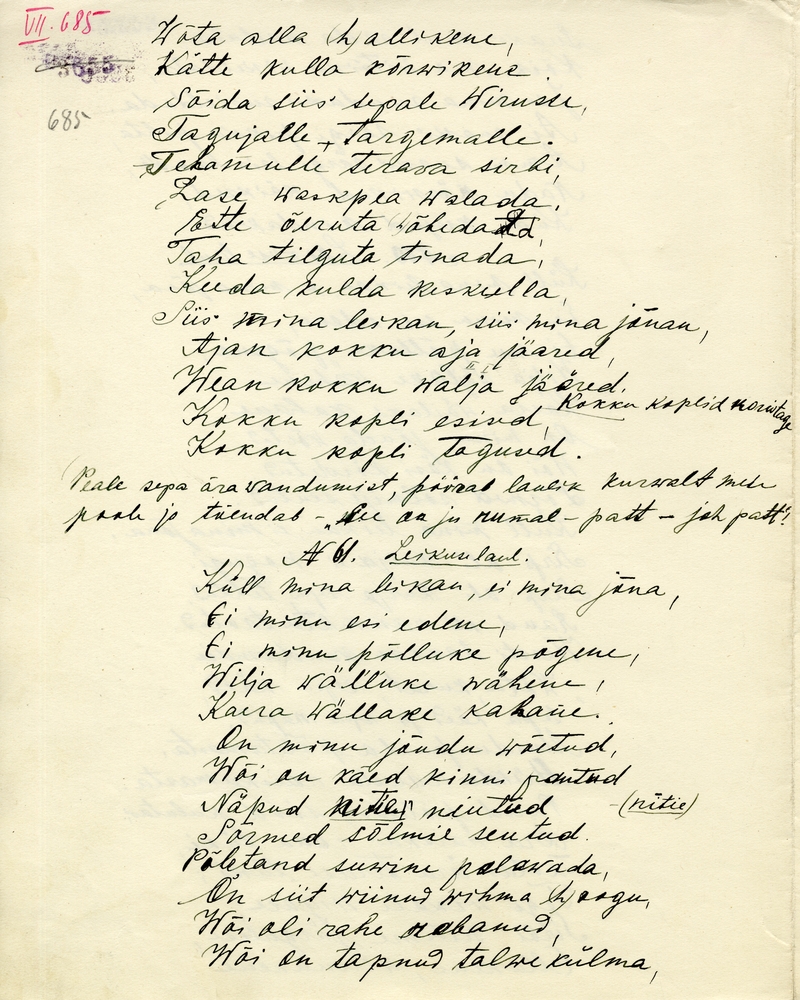 VII. 685
685
Wõta alla (h)allikene,
Kätte kulla kõrwikene.
Sõida siis sepale Wirusse,
Tagujalle, targemalle.
Teha mulle terawa sirbi,
Lase waskpea walada,
Ette õeruta (h)õbedada,
Taha tilguta tinada,
Keeda kulda keskeella,
Siis mina leikan, siis mina jõnan,
Ajan kokku aja jääred,
Wean kokku walja jääred.
Kokku koplid
Kokku kopli esised,
Kokku kopli tagused.
(Peale sepa ärawandumist, pöörab laulik kurwalt meie
poole jo tõendab - „See on ju rumal - patt - joh patt"!
N 61. Leikuse laul.
Küll mina leikan, ei mina jõna,
Ei minu esi edene,
Ei minu põlluke põgene,
Wilja wälluke wähene,
Kaera wällake kahane.
On minu jõudu wõetud,
Wõi on käed kinni pantud
Näpud neutud (nitie)
Sõrmed sõlmie seutud.
Põletand suwine palawada,
On siit wiinud wihma (h)oogu,
Wõi oli rahe rabanud,
Wõi on tapnud talwe külma,